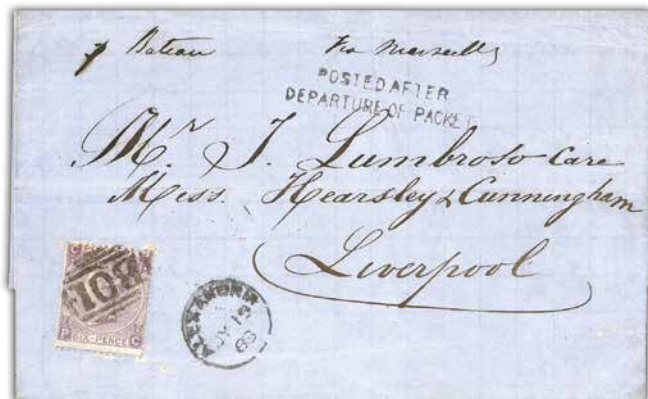 p Bateau Via Marseilles
POSTED AFTER
DEPARTURE OF PACKET
Mr. J. Lumbroso Care
Mess. Hearsley & Cunningham
Liverpool
B01
P SIX-PENCE C
ALEXANDRIA
19